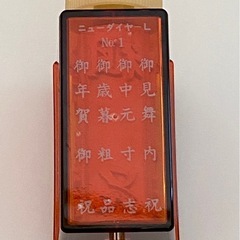 ニューダイヤーL
No.1
御見舞 内祝
御中元 寸志
御歳暮 粗品
御年賀 御祝